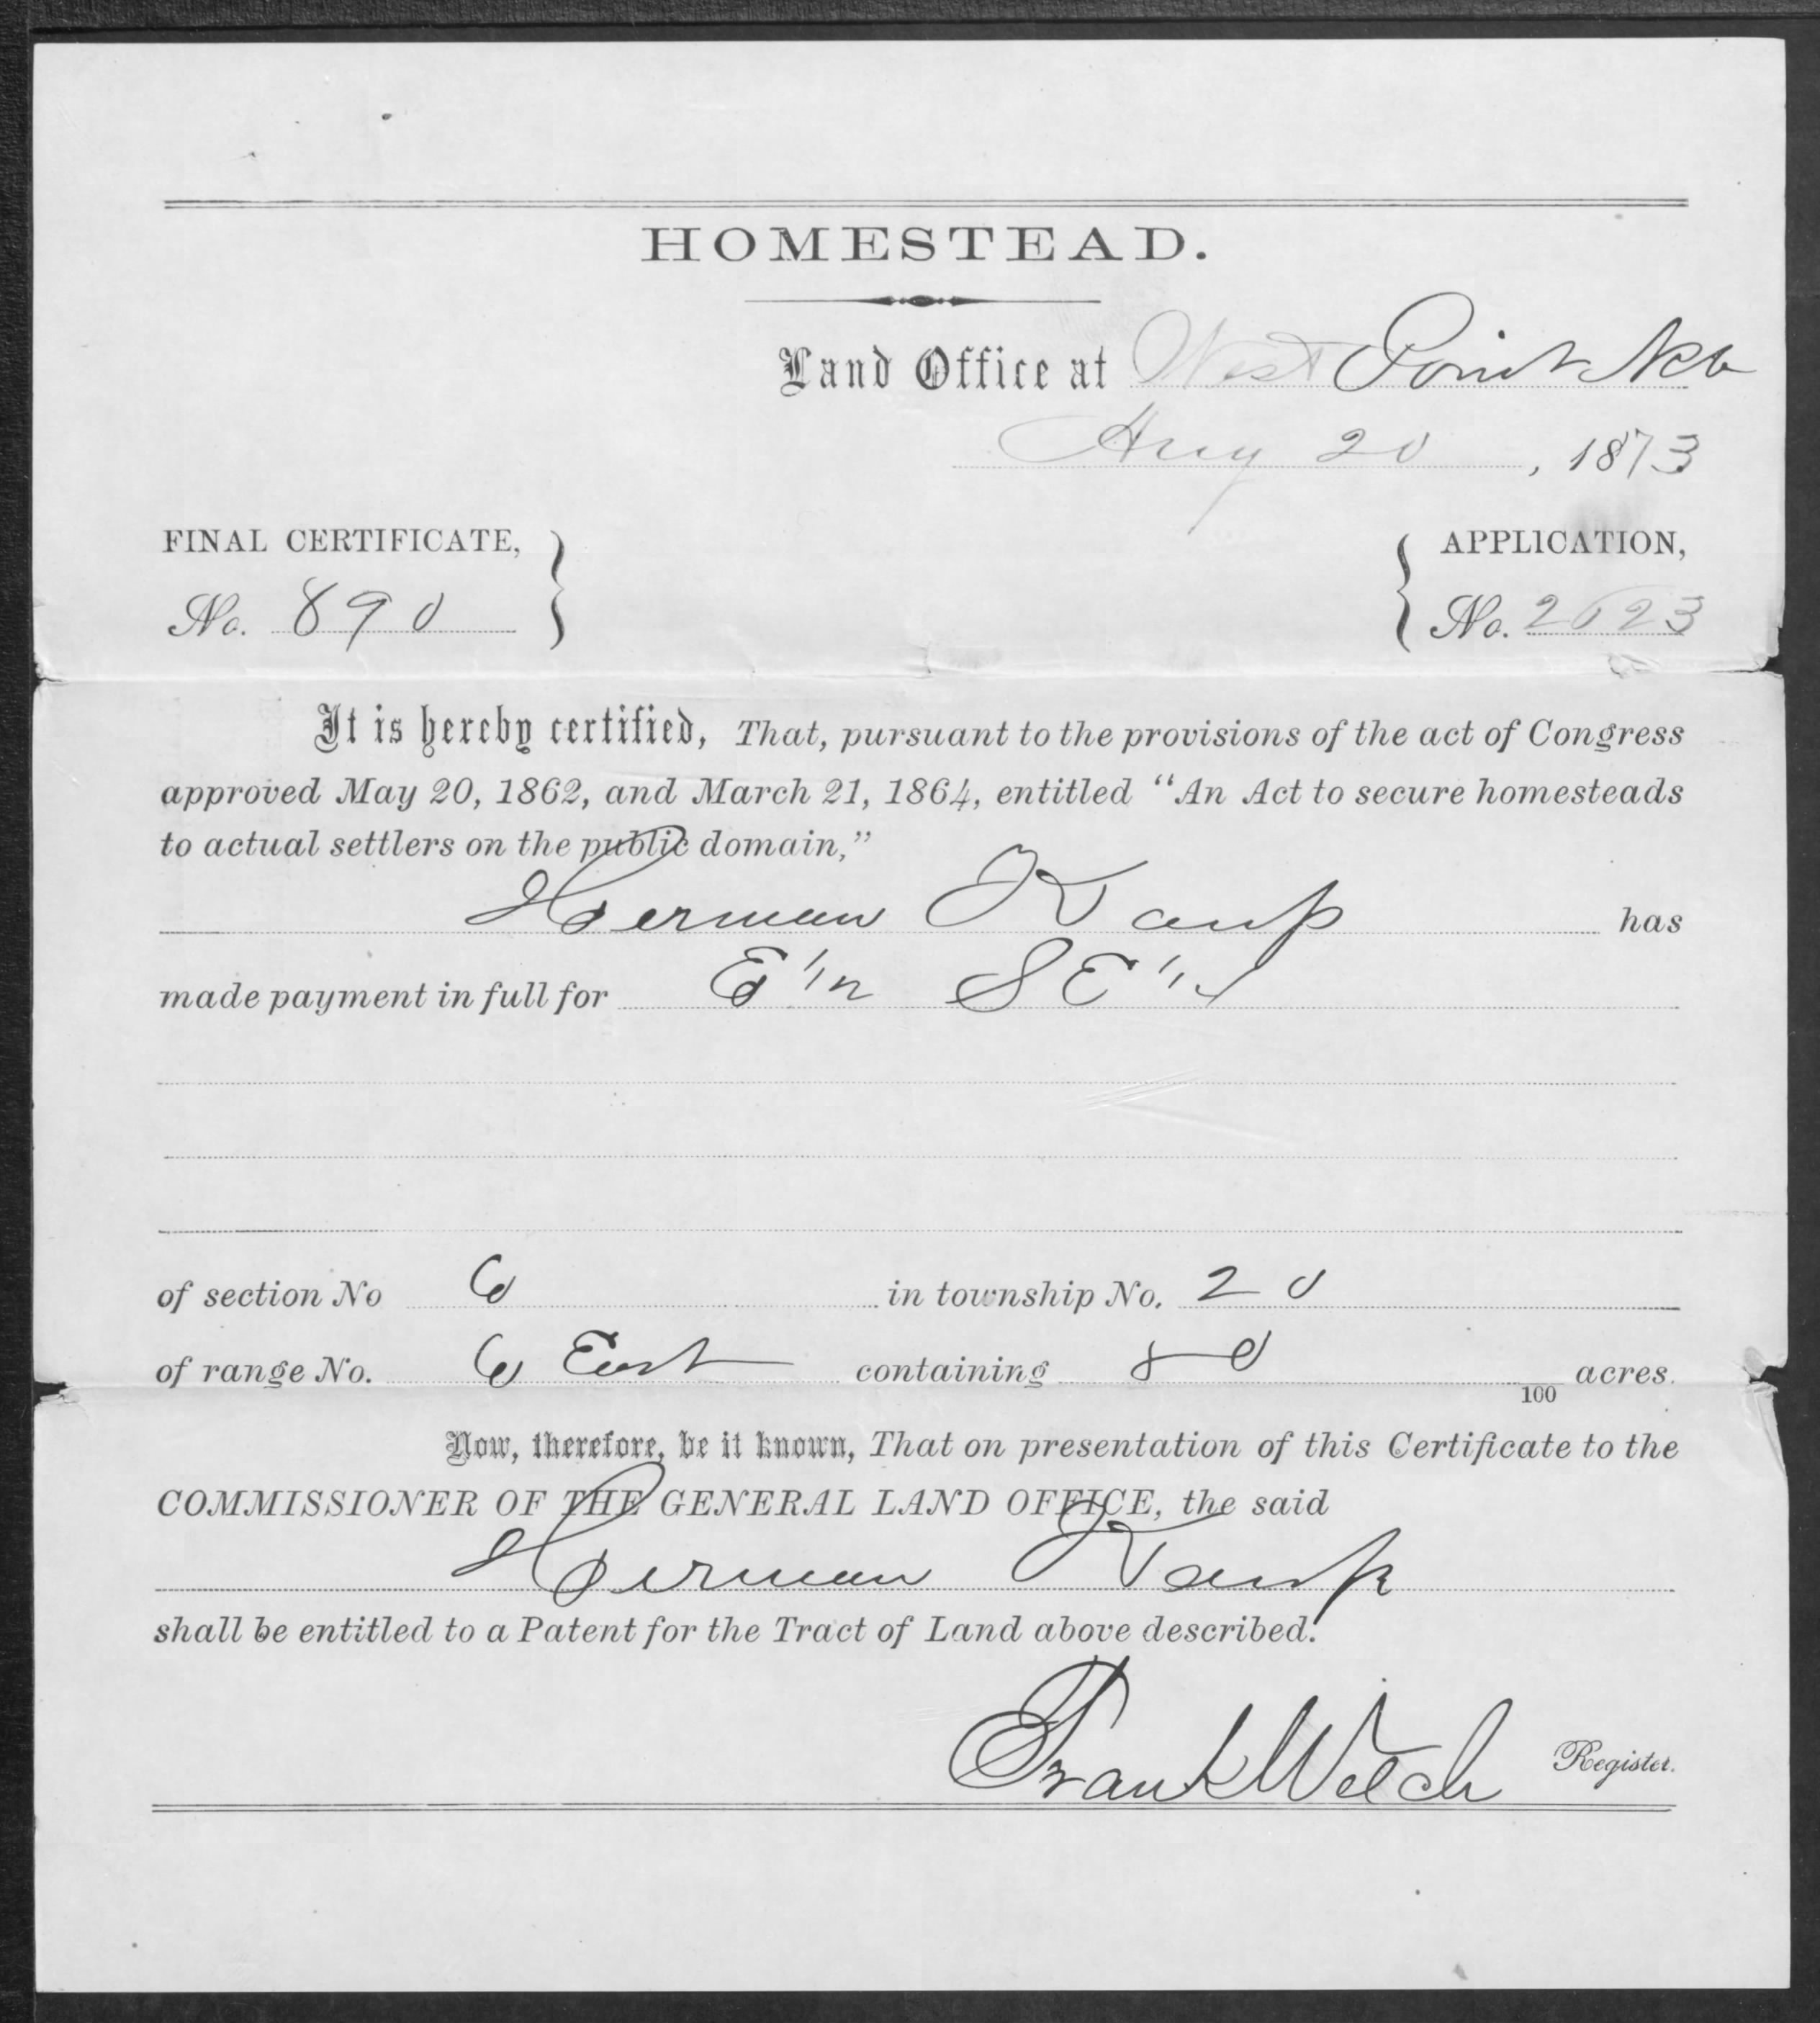 HOMESTEAD.
Land Office at West Point Neb
Aug 20, 1873
FINAL CERTIFICATE, APPLICATION,
No. 890 No. 2623
It is hereby certified, That, pursuant to the provisions of the act of Congress
approved May 20, 1862, and March 21, 1864, entitled “An Act to secure homesteads
to actual settlers on the public domain,”
Herman Kaup has
made payment in full for E 1/2 S E 1/4
of section No 6 in township No. 20
of range No. 6 East containing 80 100 acres.
Now, therefore, be it known, That on presentation of this Certificate to the
COMMISSIONER OF THE GENERAL LAND OFFICE, the said
Herman Kaup
shall be entitled to a Patent for the Tract of Land above described.
Frank Welch Register.